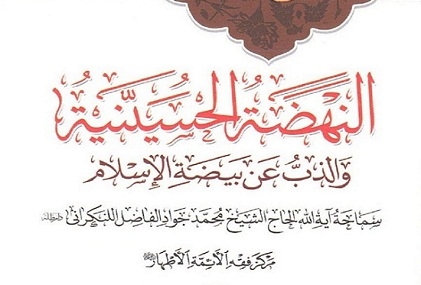 النهضة الحسينية
والذب عن بيضة الإسلام
سماحة آية الله الحاج الشيخ محمد جواد الفاضل اللنكراني دام ظله
مركز فقه الأئمة الأطهار